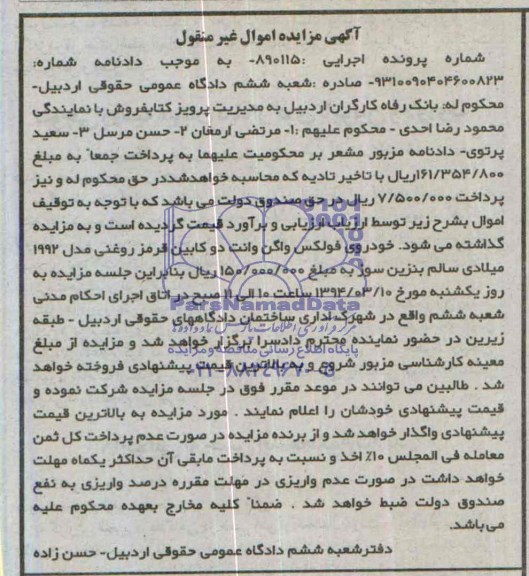 آگهی مزایده اموال غیر منقول
شماره پرونده اجرایی :۸۹۰۱۱۵- به موجب دادنامه شماره:
۹۳۱۰۰۹۰۴۰۴۶۰۰۸۲۳- صادره :شعبه ششم دادگاه عمومی حقوقی اردبیل-
محکوم له: بانک رفاه کارگران اردبیل به مدیریت پرویز کتابفروش با نمایندگی
محمود رضا احدی - محکوم علیهم :۱- مرتضی ارمغان ۲- حسن مرسل ۳- سعید
پرتوی- دادنامه مزبور مشعر بر محکومیت علیهما به پرداخت جمعاً به مبلغ
۱۶۱/۳۵۴/۸۰۰ریال با تاخیر تادیه که محاسبه خواهدشددر حق محکوم له و نیز
پرداخت ۷/۵۰۰/۰۰۰ ریال در حق صندوق دولت می باشد که با توجه به توقیف
اموال بشرح زیر توسط ارزیاب ارزیابی و برآورد قیمت گردیده است و به مزایده
گذاشته می شود. خودروی فولکس واگن وانت دو کابین قرمز روغنی مدل ۱۹۹۲
میلادی سالم بنزین سوز به مبلغ ۱۵۰/۰۰۰/۰۰۰ ریال بنابراین جلسه مزایده به
روز یکشنبه مورخ ۱۳۹۴/۰۳/۱۰ ساعت ۱۰ الی ۱۱ صبح در اتاق اجرای احکام مدنی
شعبه ششم واقع در شهرک اداری ساختمان دادگاههای حقوقی اردبیل - طبقه
زیرین در حضور نماینده محترم دادسرا برگزار خواهد شد و مزایده از مبلغ
معینه کارشناسی مزبور شروع و به بالاترین قیمت پیشنهادی فروخته خواهد
شد . طالبین می توانند در موعد مقرر فوق در جلسه مزایده شرکت نموده و
قیمت پیشنهادی خودشان را اعلام نمایند . مورد مزایده به بالاترین قیمت
پیشنهادی واگذار خواهد شد و از برنده مزایده در صورت عدم پرداخت کل ثمن
معامله فی المجلس ۱۰٪ اخذ و نسبت به پرداخت مابقی آن حداکثر یکماه مهلت
خواهد داشت در صورت عدم واریزی در مهلت مقرره درصد واریزی به نفع
صندوق دولت ضبط خواهد شد . ضمناً کلیه مخارج بعهده محکوم علیه
می باشد.
دفتر شعبه ششم دادگاه عمومی حقوقی اردبیل- حسن زاده
ParsNamadData
مرکز فرآوری اطلاعات پارس نماد داده ها
پایگاه اطلاع رسانی مناقصه و مزایده